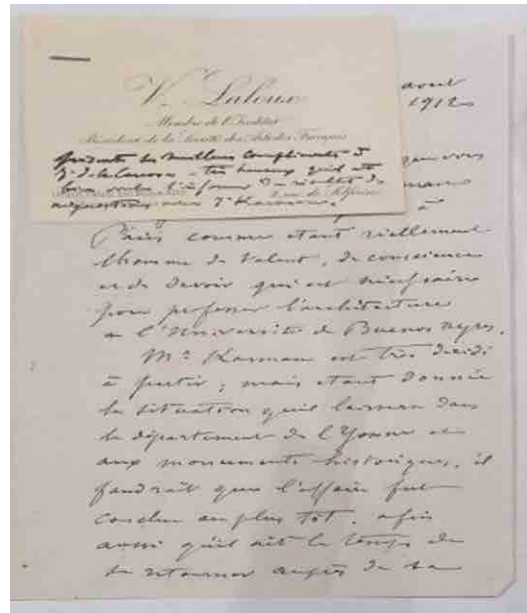 V. Laloux
Membre de l'Institut
Président de la Société des Artistes Français
présente ses meilleurs compliments à
Mr de la Carcova - très heureux qu'il ait
bien voulu l'informer du résultat de
Mr Karman.
rue de Solférino
août
1912
que vous
à
Paris comme étant réellement
l'homme de talent, de conscience
et de devoir qui est nécessaire
pour professer l'architecture
à l'Université de Buenos Ayres.
Mr Karman est très décidé
à partir ; mais étant donnée
la situation qu'il laissera dans
le département de l'Yonne et
aux monuments historiques, il
faudrait que l'affaire fut
conclue au plus tôt, afin
aussi qu'il ait le temps de
se retourner auprès de sa